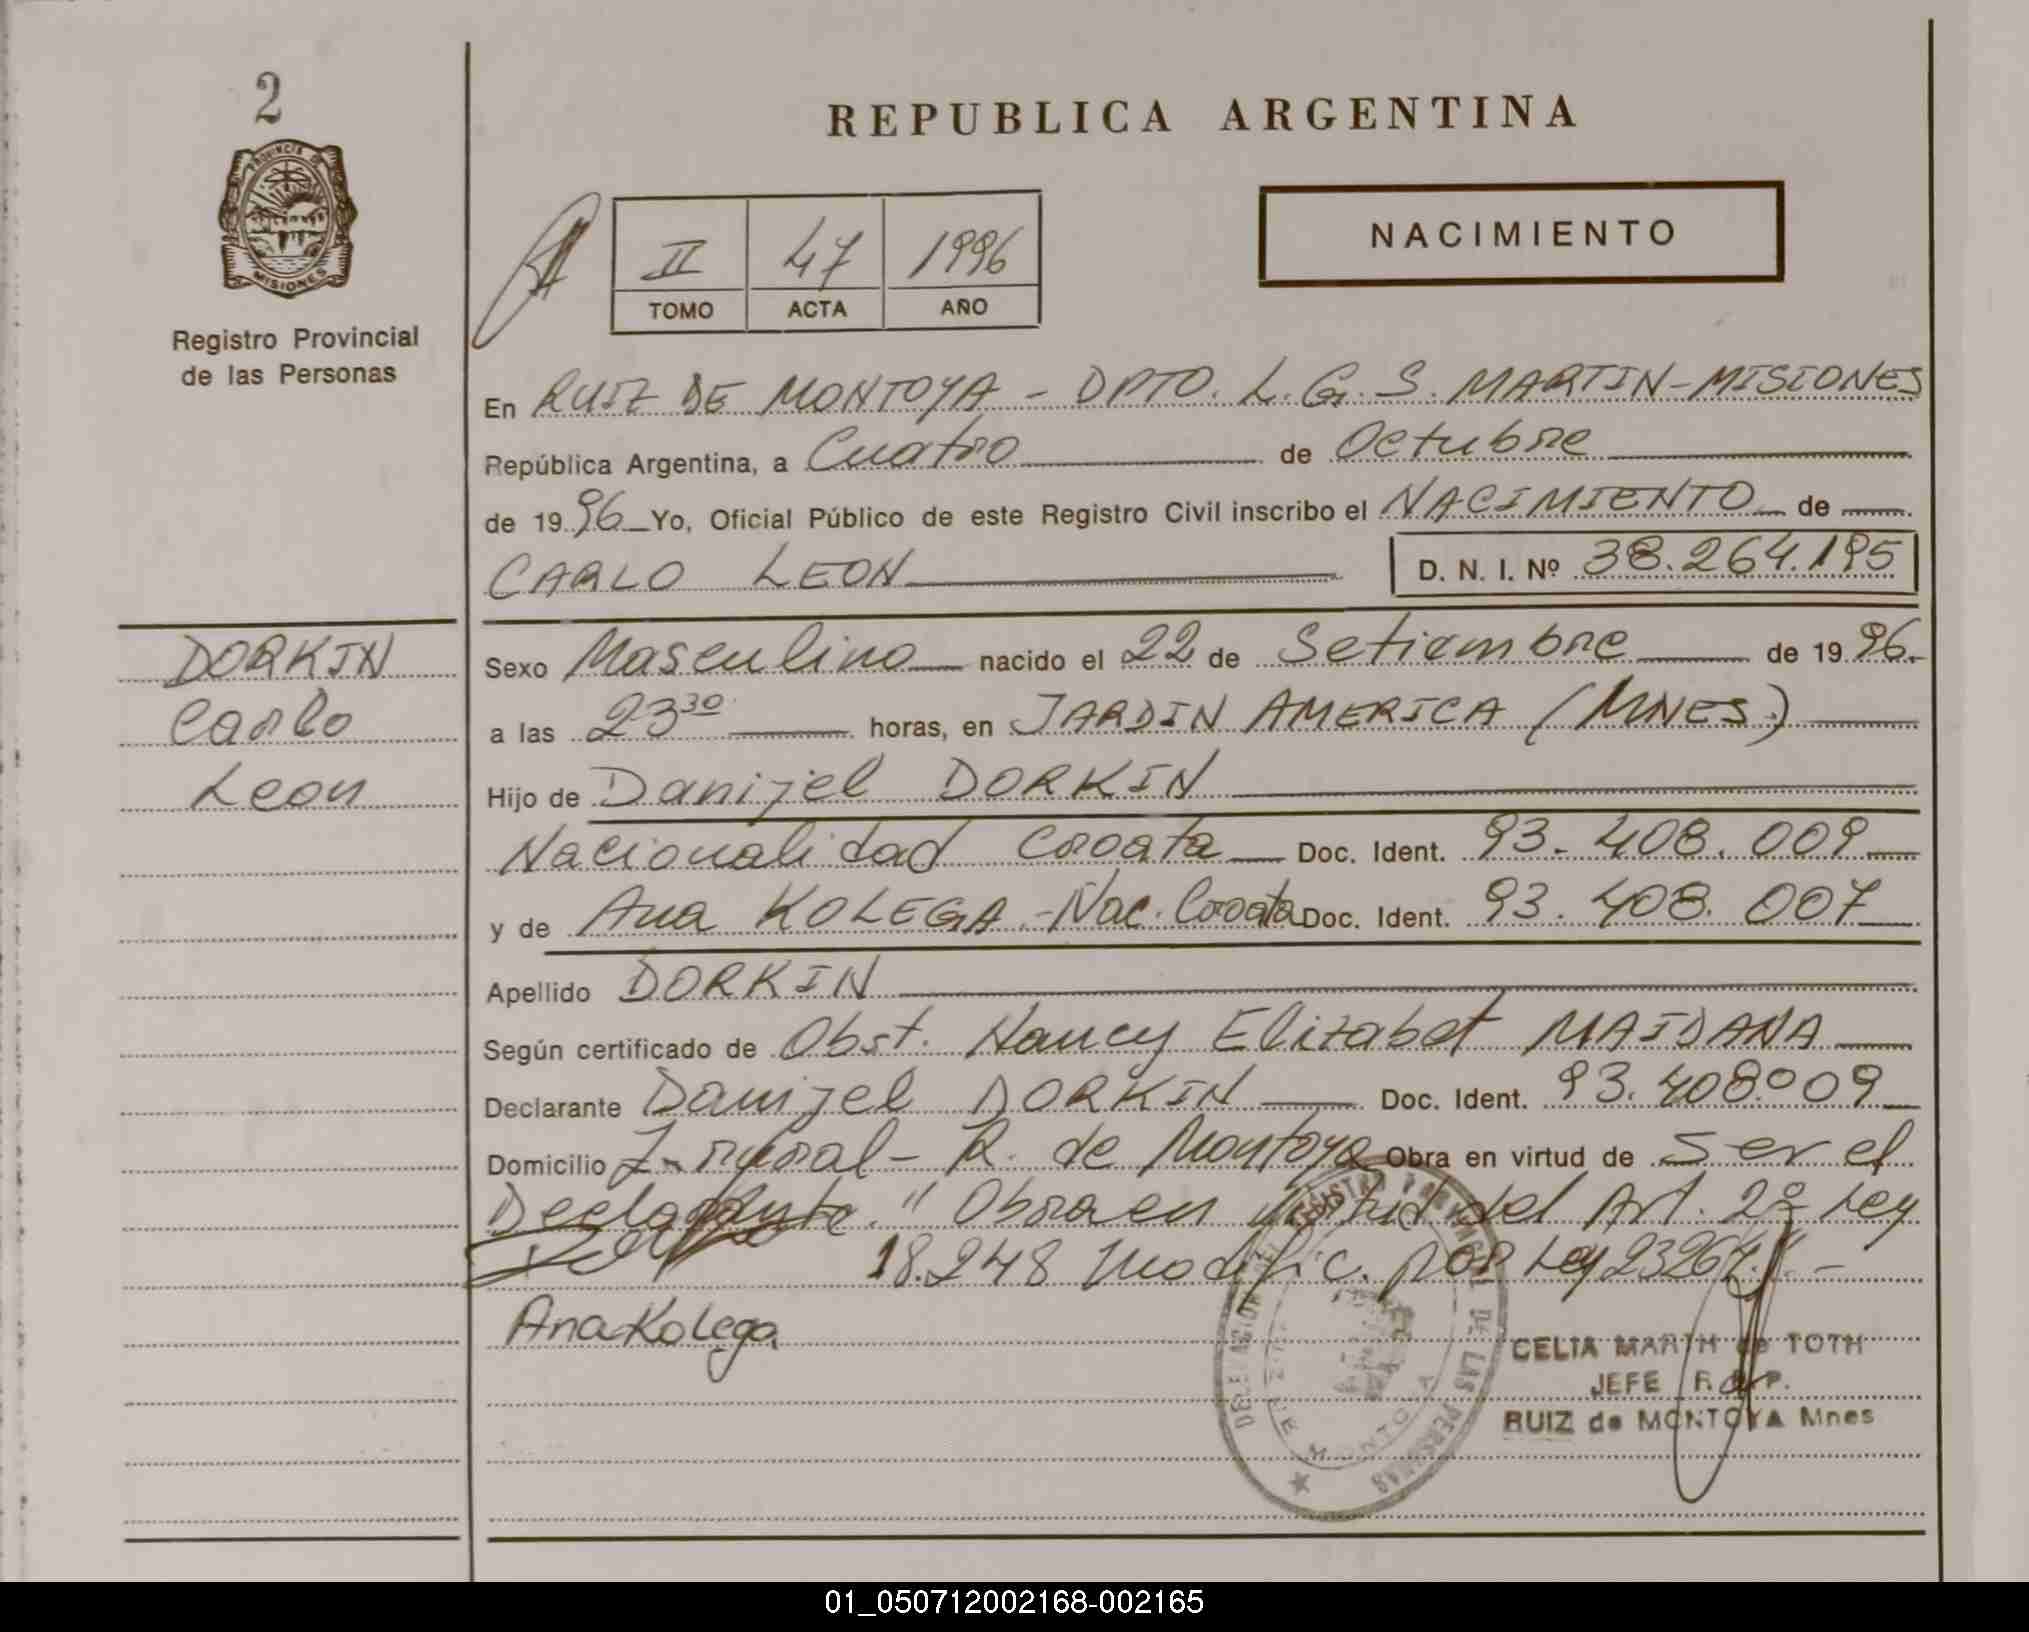 2
PROVINCIA DE
MISIONES
Registro Provincial
de las Personas
REPUBLICA ARGENTINA
II 47 1996
TOMO ACTA AÑO
NACIMIENTO
En RUIZ DE MONTOYA - DPTO. L. G. S. MARTIN-MISIONES
República Argentina, a Cuatro de Octubre
de 1996 Yo, Oficial Público de este Registro Civil inscribo el NACIMIENTO de
CARLO LEON D. N. I. Nº 38.264.195
DORKIN
Carlo
Leon
Sexo Masculino nacido el 22 de Setiembre de 1996.
a las 23 30 horas, en JARDIN AMERICA (MNES.)
Hijo de Danijel DORKIN
Nacionalidad Croata Doc. Ident. 93.408.009
y de Ana KOLEGA - Nac. Croata Doc. Ident. 93.408.007
Apellido DORKIN
Según certificado de Obst. Nancy Elizabet MAIDANA
Declarante Danijel DORKIN Doc. Ident. 93.408.009
Domicilio Z. rural - R. de Montoya Obra en virtud de ser el
Declarante. "Obra en virtud del Art. 2º Ley
18.248 modific. por Ley 23264". -
Ana Kolega
CELIA de TOTH
JEFE R. P.
RUIZ de MONTOYA Mnes
DE LAS PERSONAS
DE MONTOYA
01_050712002168-002165